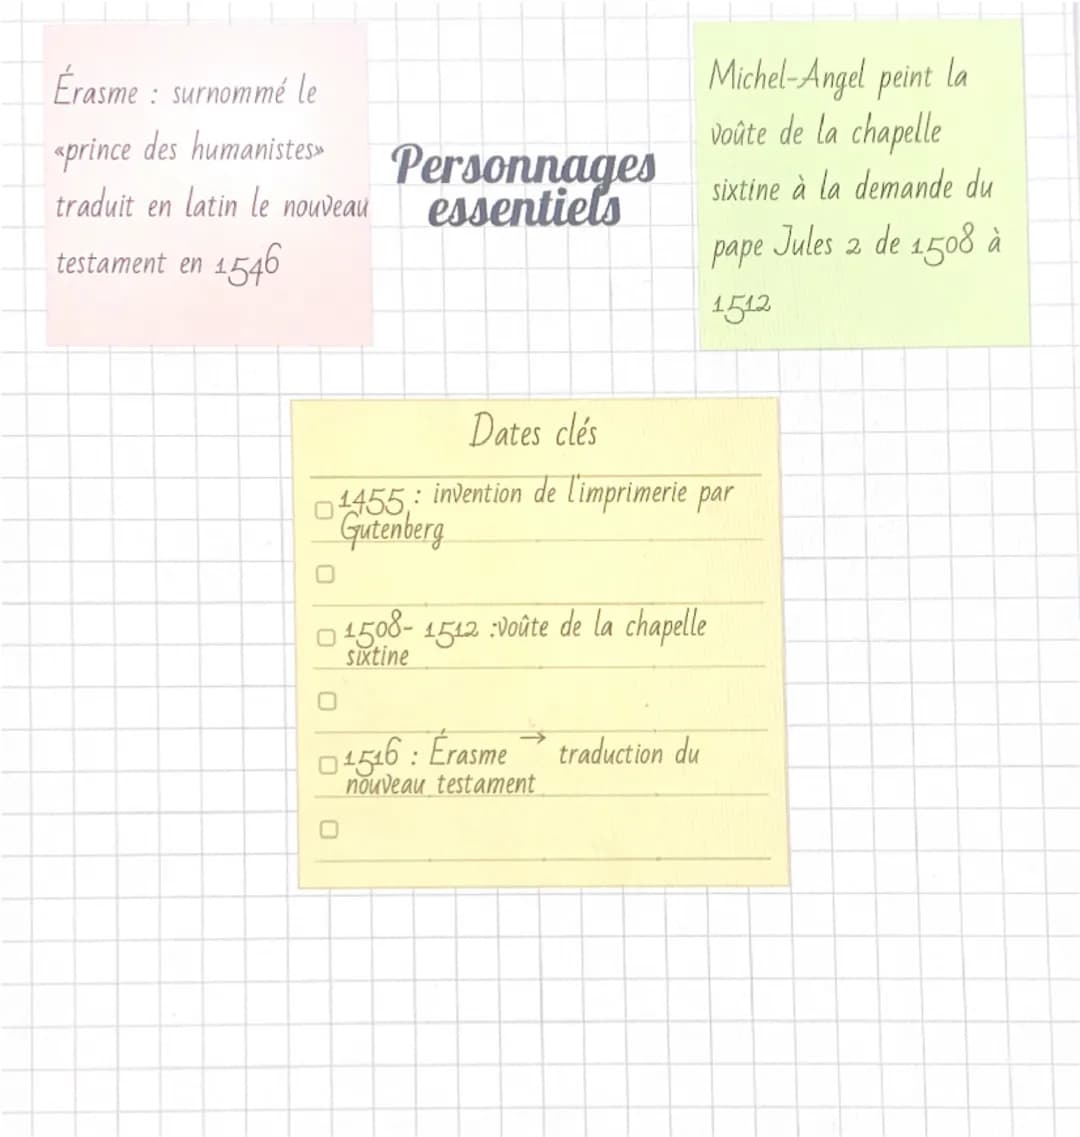 Érasme : surnommé le
«prince des humanistes»
traduit en latin le nouveau
testament en 1546
Personnages
essentiels
Michel-Angel peint la
voûte de la chapelle
sixtine à la demande du
pape Jules 2 de 1508 à
1512
Dates clés
1455 : invention de l'imprimerie par
Gutenberg
1508- 1512 :voûte de la chapelle
sixtine
1516 : Érasme → traduction du
nouveau testament